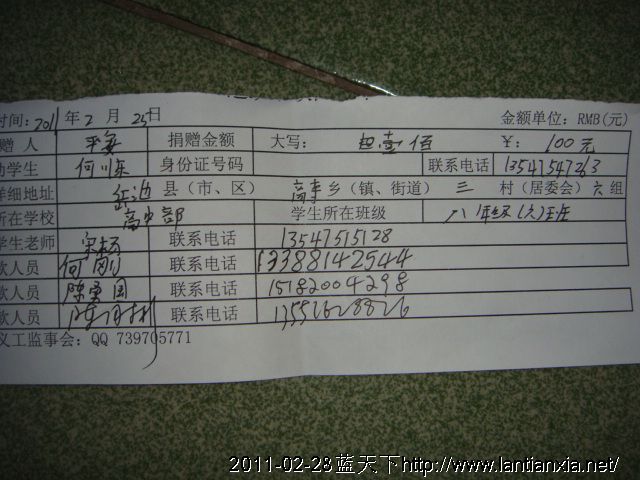 时间: 2011 年 2 月 25 日 金额单位: RMB(元)
赠 人 平安 捐赠金额 大写: 壹佰 ¥: 100 元
学生 何川东 身份证号码 联系电话 13547547263
详细地址 岳池 县(市、区) 乡(镇、街道) 三 村(居委会) 六 组
所在学校 高中部 学生所在班级 八年级(六)班
学生老师 宋杨 联系电话 13547515128
款人员 何刚 联系电话 13388142544
款人员 陈勇国 联系电话 15182004298
款人员 联系电话 13551628826
义工监事会: QQ 739705771
2011-02-28蓝天下http://www.lantianxia.net/